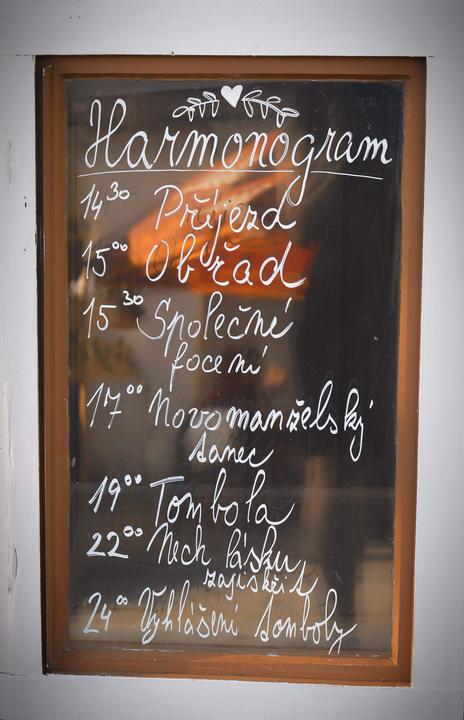 Harmonogram
14³⁰ Příjezd
15⁰⁰ Obřad
15³⁰ Společné
focení
17⁰⁰ Novomanželský
tanec
19⁰⁰ Tombola
22⁰⁰ Nech lásku
zajiskřit
24⁰⁰ Vyhlášení tomboly